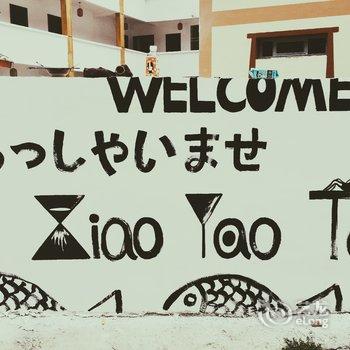 WELCOME
らっしゃいませ
Xiao Yao T
eLong